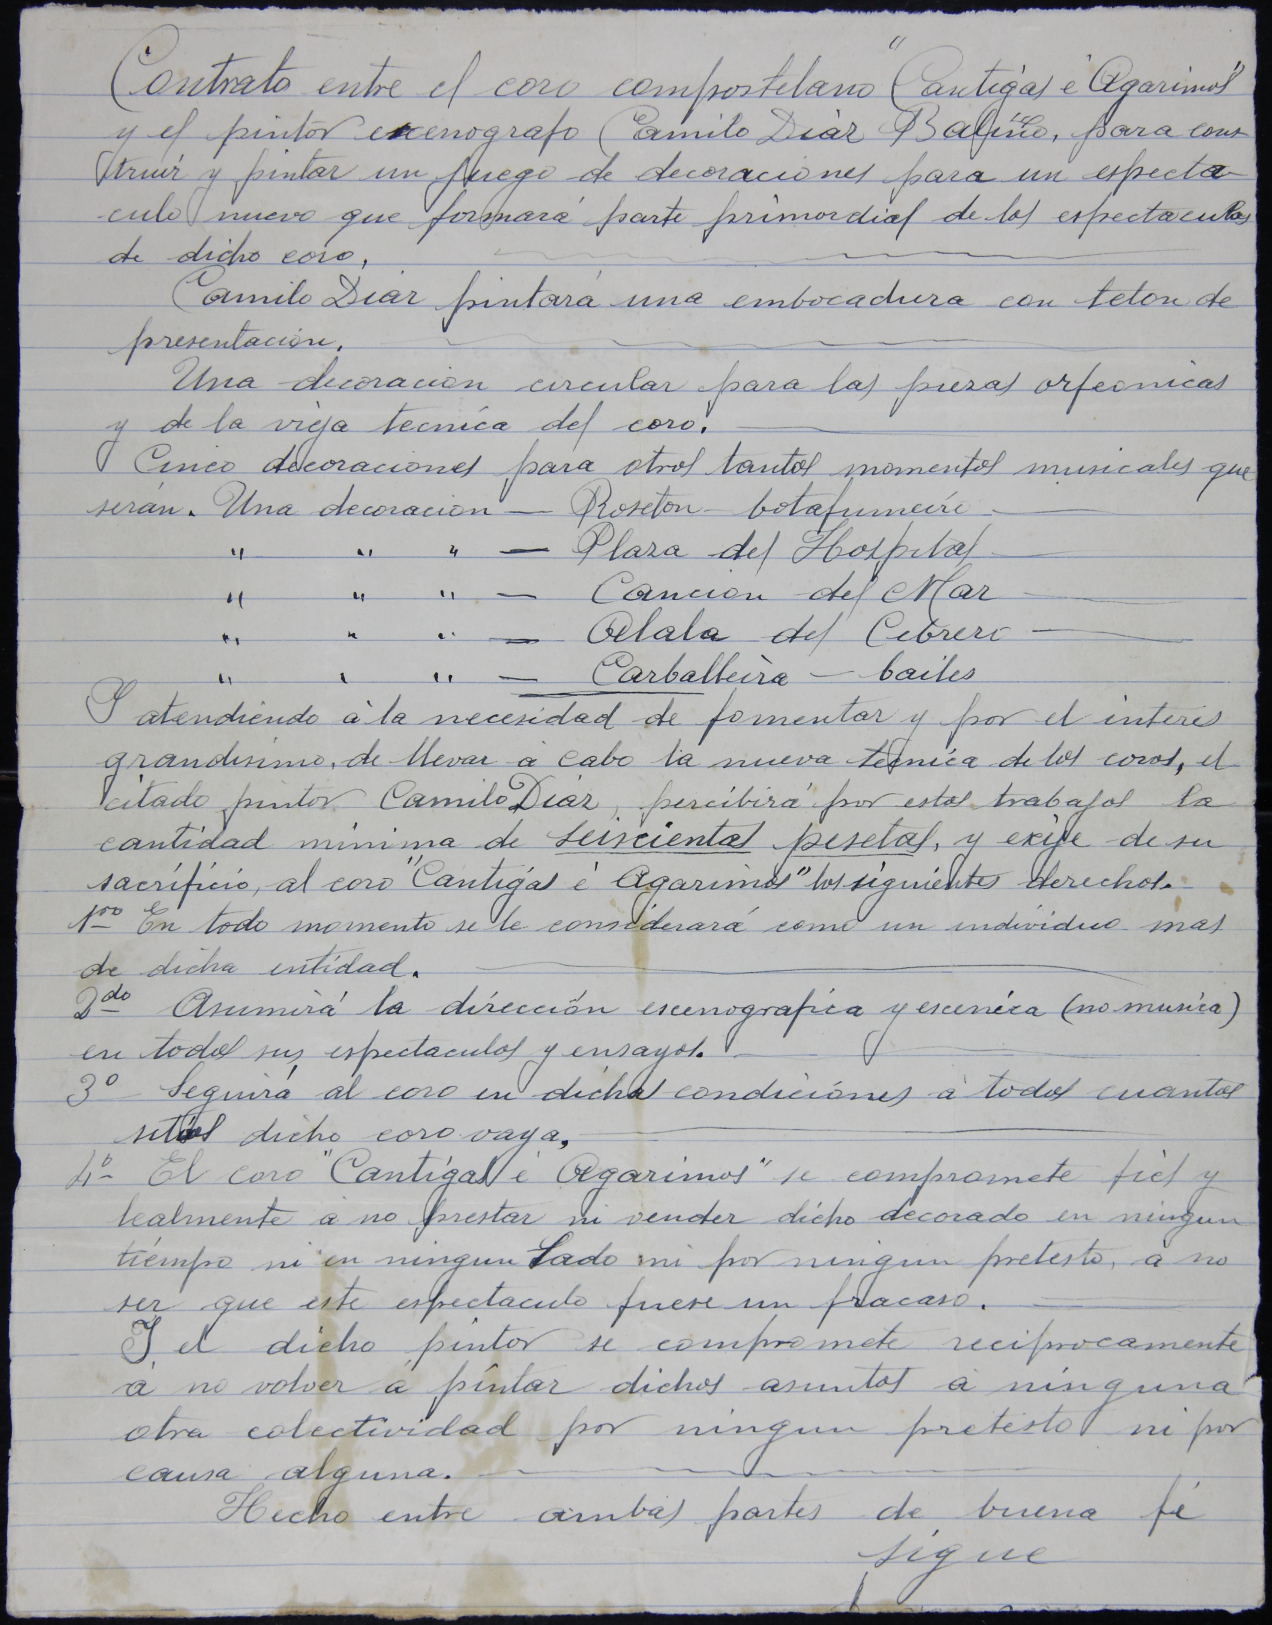 Contrato entre el coro compostelano "Cantigas é Agarimos"
y el pintor escenografo Camilo Diaz Baliño, para cons
truir y pintar un juego de decoraciones para un especta-
culo nuevo que formará parte primordial de los espectaculos
de dicho coro.
Camilo Diaz pintará una embocadura con telon de
presentación.
Una decoracion circular para las piezas orfeonicas
y de la vieja tecnica del coro.
Cinco decoraciones para otros tantos momentos musicales que
serán. Una decoracion — Roseton - botafumeiro
" " " — Plaza del Hospital
" " " — Cancion del Mar
" " " — Alala del Cebrero
" " " — Carballeira - bailes
Y atendiendo á la necesidad de fomentar y por el interes
grandisimo, de llevar á cabo la nueva tecnica de los coros, el
citado pintor Camilo Diaz, percibirá por estos trabajos la
cantidad minima de seiscientas pesetas, y exije de su
sacrificio, al coro "Cantigas é Agarimos" los siguientes derechos.
1ro En todo momento se le considerará como un individuo mas
de dicha entidad.
2do Asumirá la dirección escenografica y escenica (no musica)
en todos sus espectaculos y ensayos.
3º Seguirá al coro en dichas condiciónes á todos cuantos
sitios dicho coro vaya.
4º El coro "Cantigas é Agarimos" se compromete fiel y
lealmente á no prestar ni vender dicho decorado en ningun
tiempo ni en ningun lado ni por ningun pretesto, á no
ser que este espectaculo fuese un fracaso.
Y el dicho pintor se compromete reciprocamente
á no volver á pintar dichos asuntos á ninguna
otra colectividad por ningun pretesto ni por
causa alguna.
Hecho entre ambas partes de buena fé
sigue